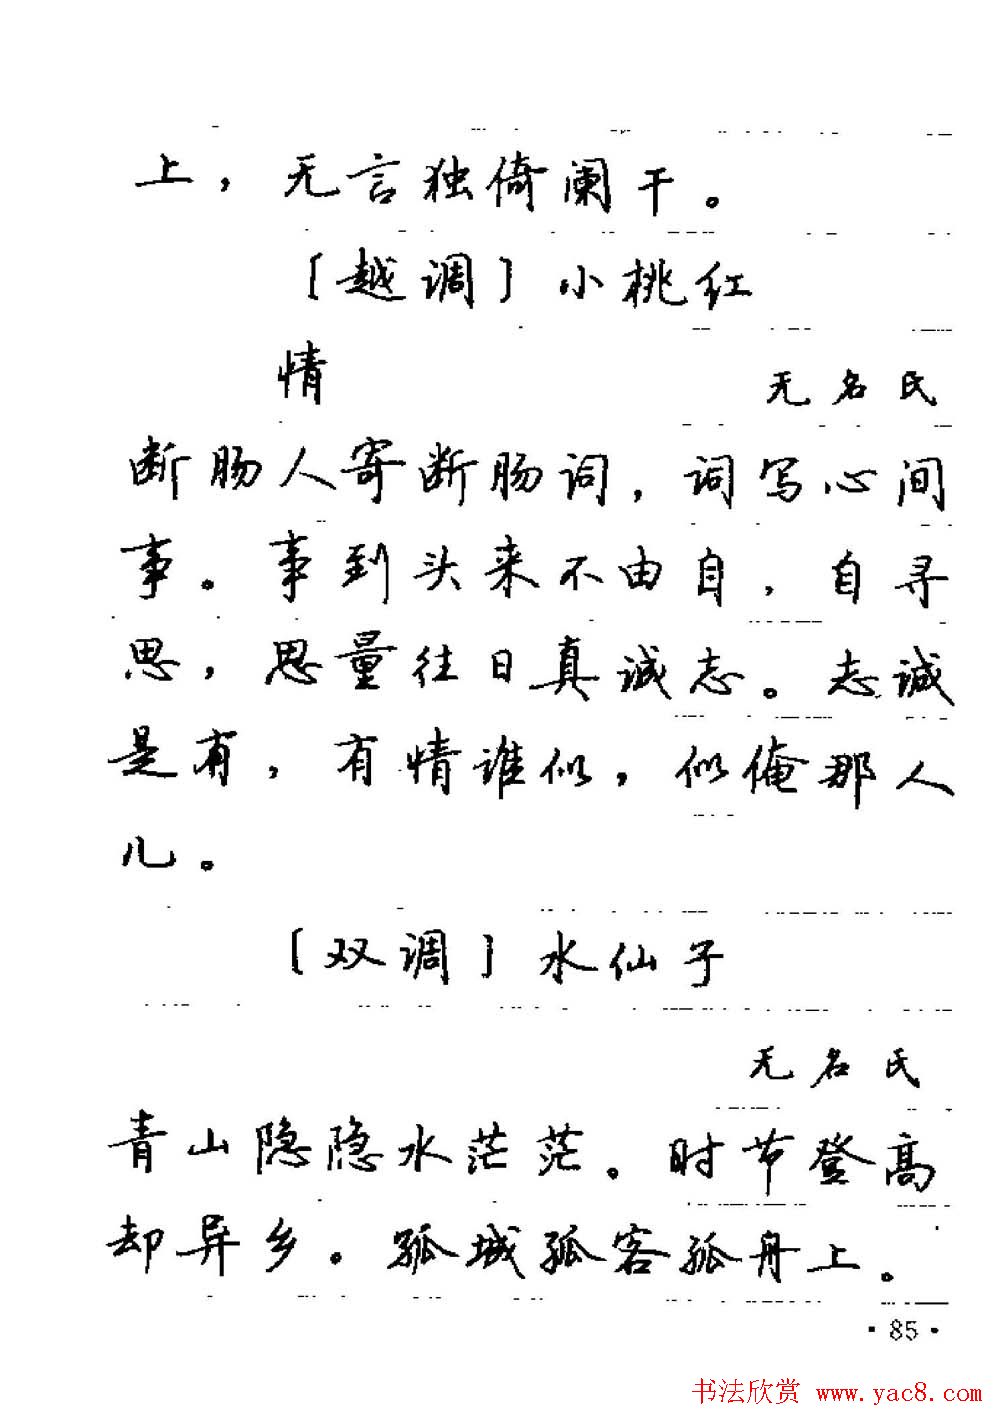 上，无言独倚阑干。
〔越调〕小桃红
情 无名氏
断肠人寄断肠词，词写心间
事。事到头来不由自，自寻
思，思量往日真诚志。志诚
是有，有情谁似，似俺那人
儿。
〔双调〕水仙子
无名氏
青山隐隐水茫茫。时节登高
却异乡。孤城孤客孤舟上。
·85·
书法欣赏 www.yac8.com